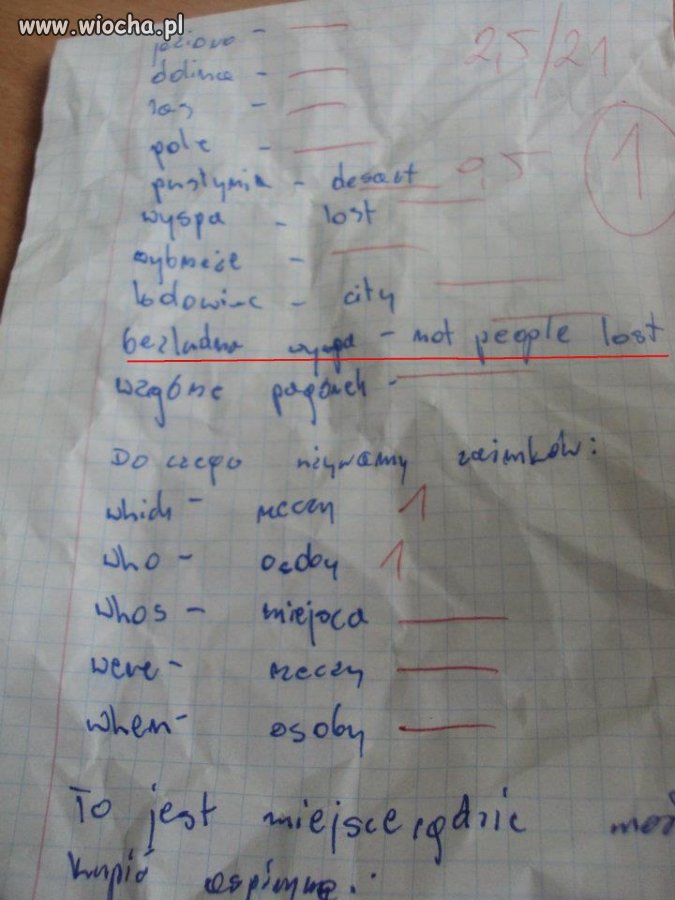 www.wiocha.pl
jezioro -
2,5/21
dolina -
las -
pole -
1
pustynia - desart 0,5
wyspa - lost
wybrzeże -
lodowiec - city
bezludna wyspa - not people lost
wzgórze pagórek -
Do czego używamy zaimków:
which - rzeczy 1
who - osoby 1
whos - miejsca
were - rzeczy
when - osoby
To jest miejsce, gdzie
kupić aspirynę.